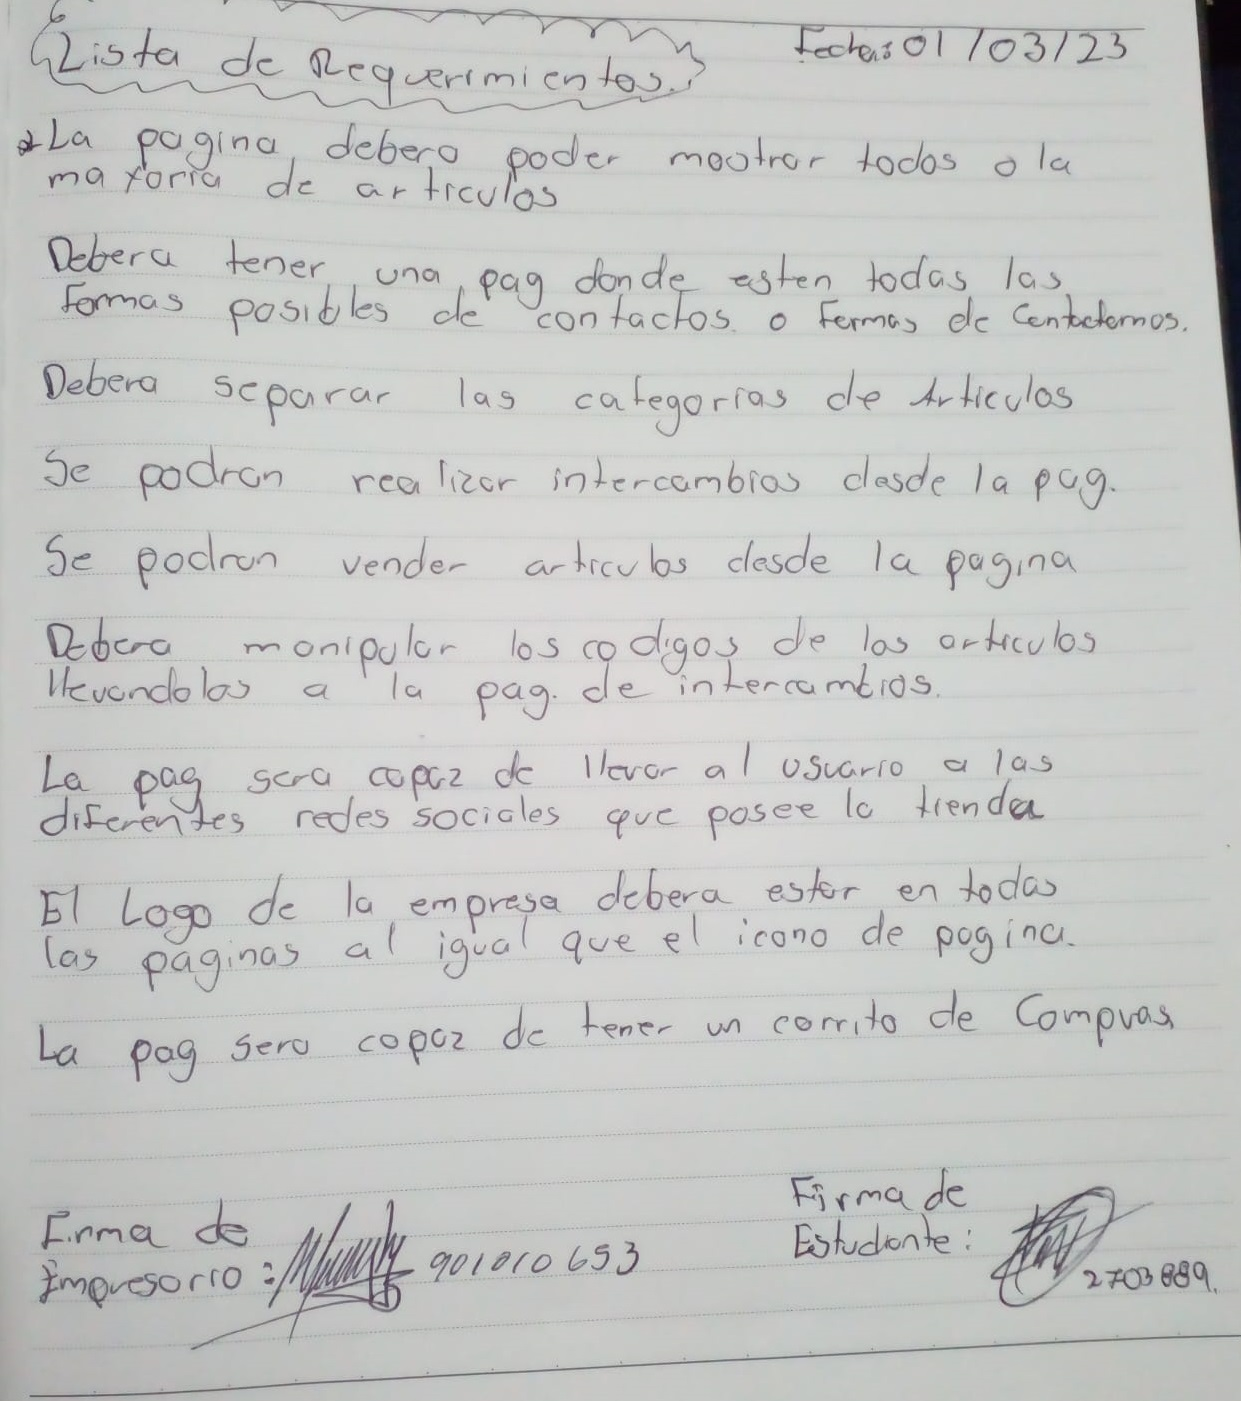 Lista de Requerimientos.
Fecha: 01/03/23
La pagina debera poder mostrar todos o la
mayoria de articulos
Debera tener una pag donde esten todas las
formas posibles de contactos o formas de Contactarnos.
Debera separar las categorias de Articulos
Se podran realizar intercambios desde la pag.
Se podran vender articulos desde la pagina
Debera manipular los codigos de los articulos
llevandolos a la pag. de intercambios.
La pag sera capaz de llevar al usuario a las
diferentes redes sociales que posee la tienda
El Logo de la empresa debera estar en todas
las paginas al igual que el icono de pagina.
La pag sera capaz de tener un carrito de Compras
Firma de
Empresario: 901010653
Firma de
Estudiante:
2703889.